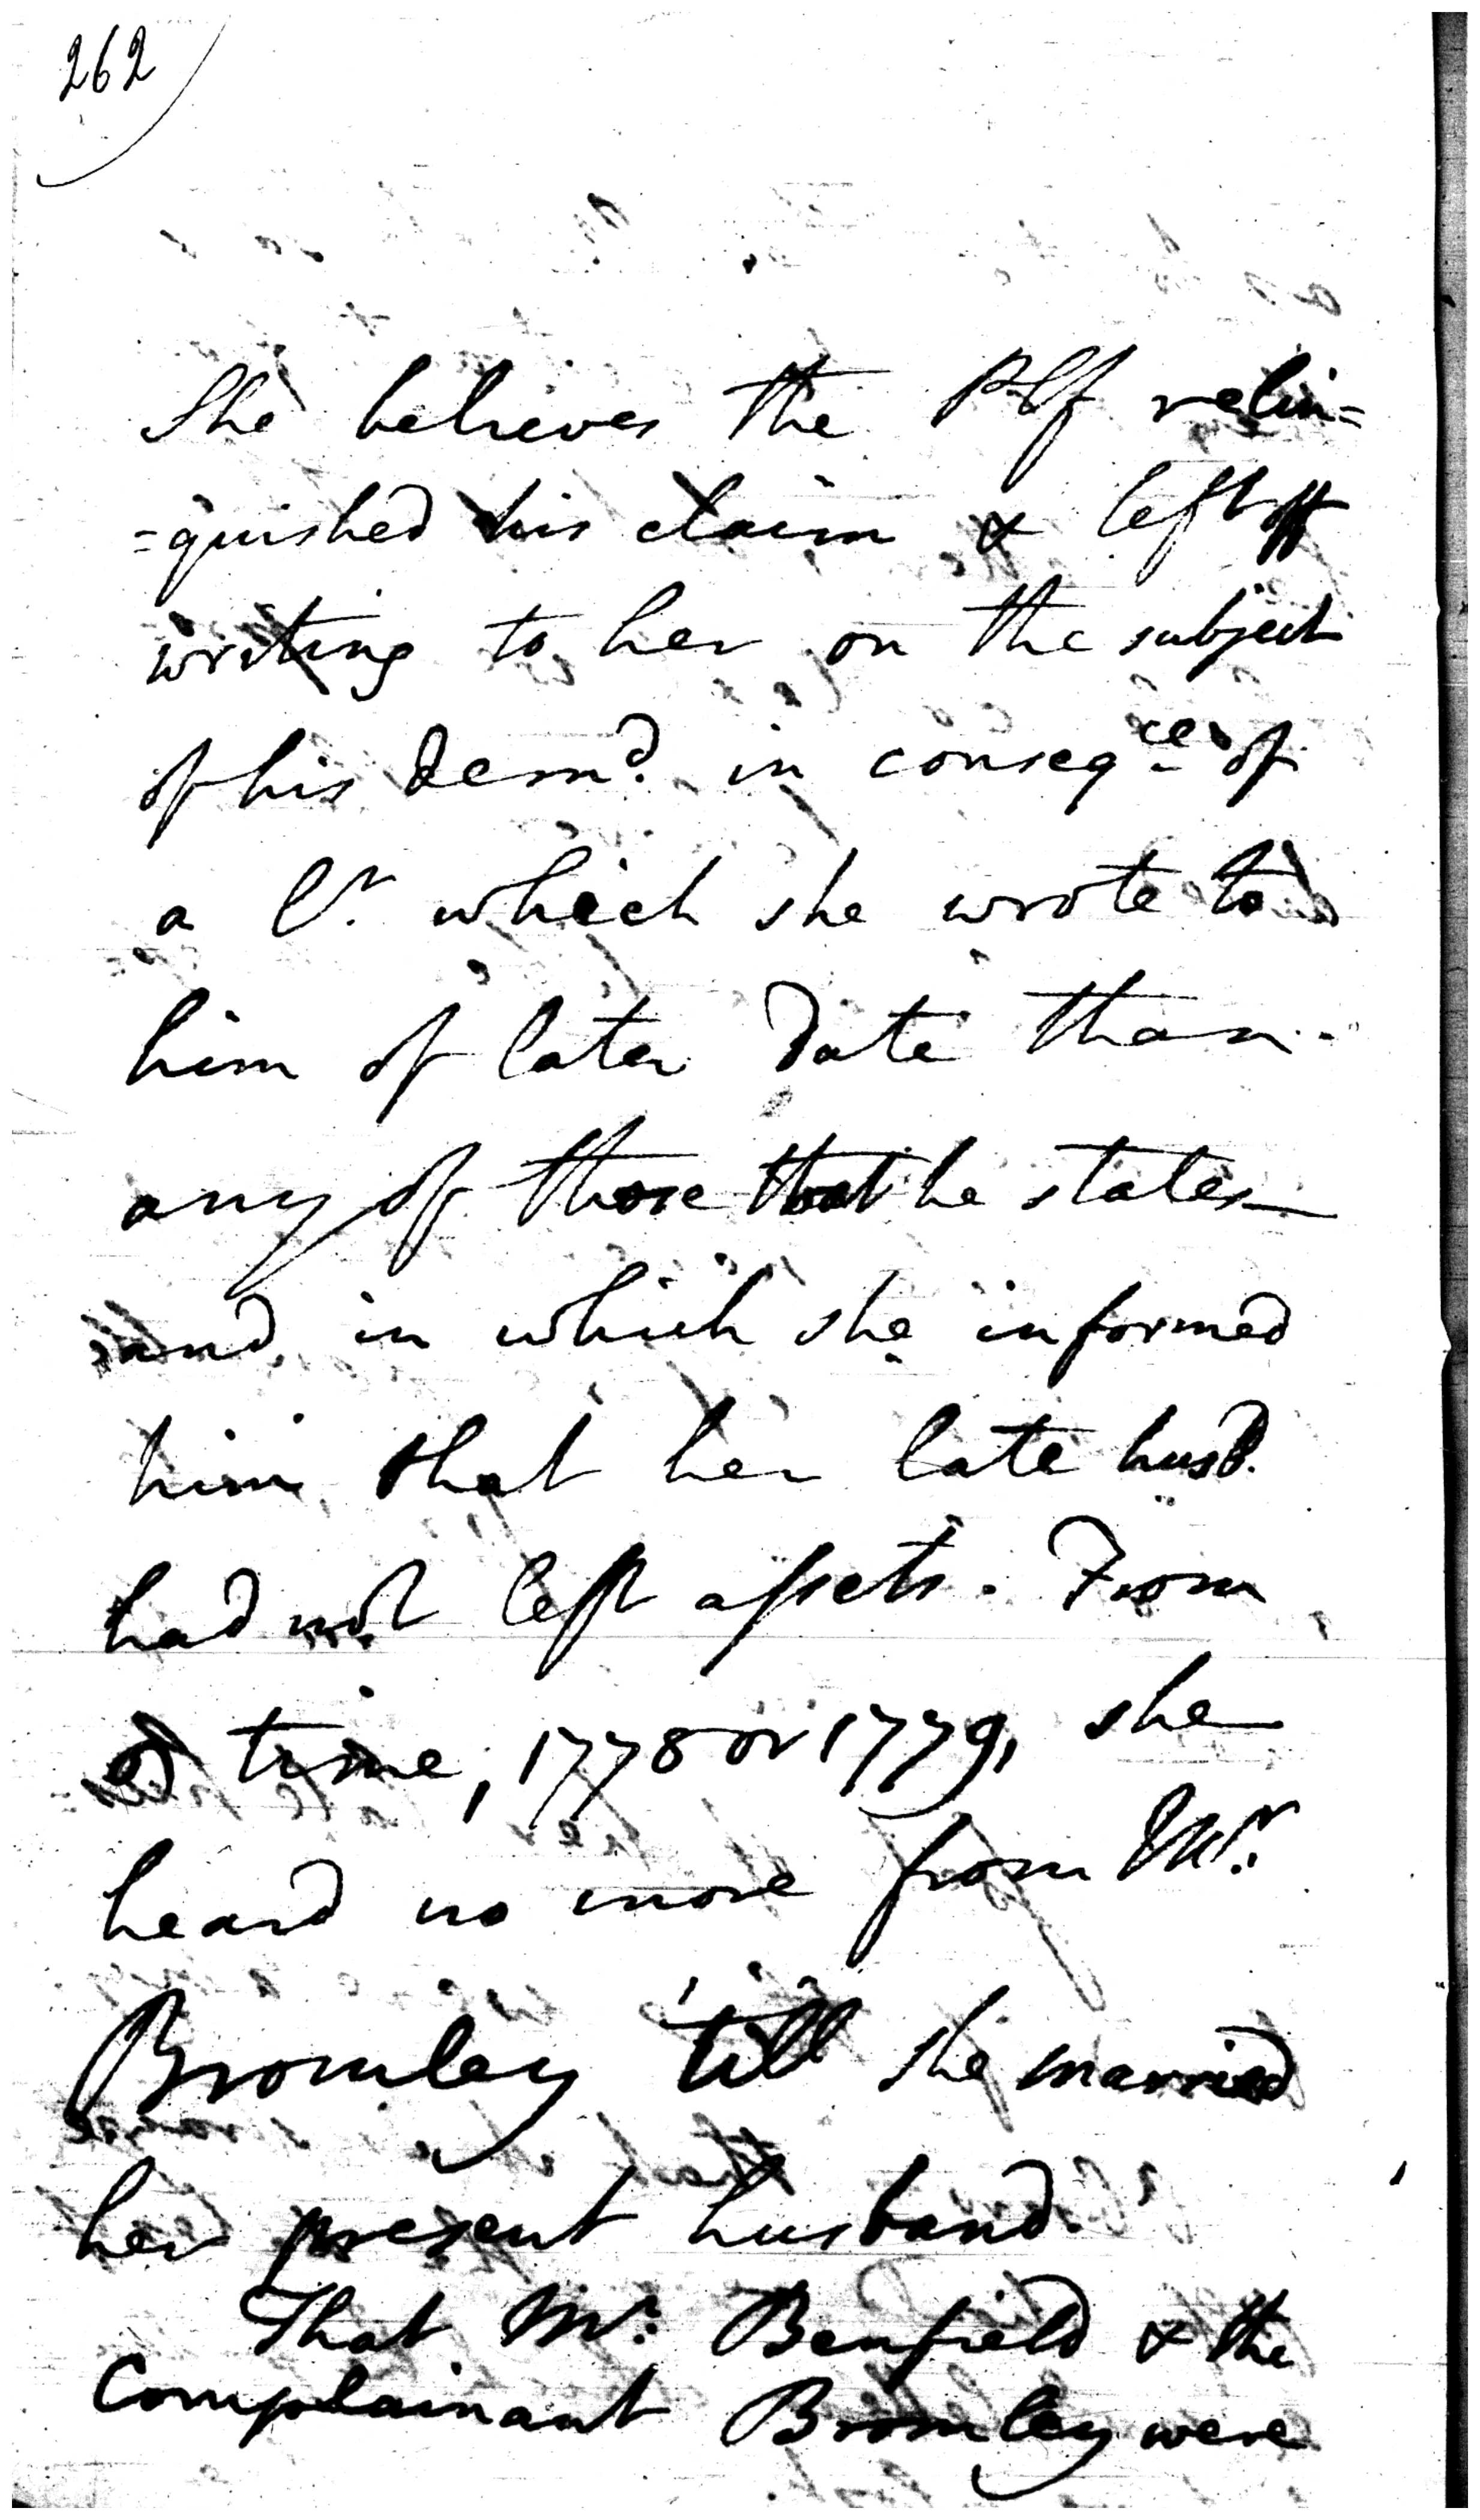 262
She believes the Plf relin=
=quished his claim & left off
writing to her on the subject
of his demd. in conseqce of
a Lr. which she wrote to
him of later date than
any of those that he states—
and in which she informed
him that her late husd.
had not left assets. From
time, 1778 or 1779, she
heard no more from Mr.
Bromley 'till she married
her present husband.
That Mr. Benfield & the
Complainant Bromley were